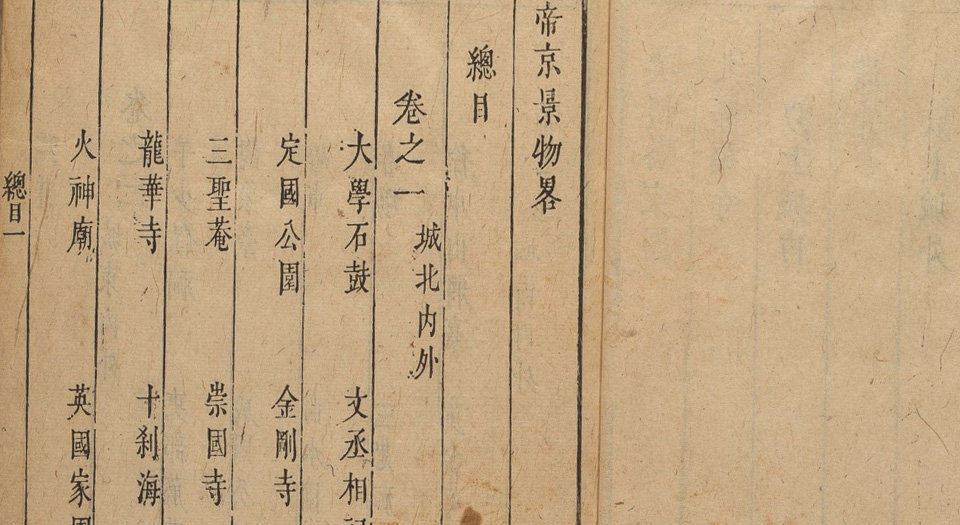 帝京景物畧
總目
卷之一 城北內外
大學石鼓 文丞相
定國公園 金剛寺
三聖菴 崇國寺
龍華寺 十刹海
火神廟 英國家
總目一